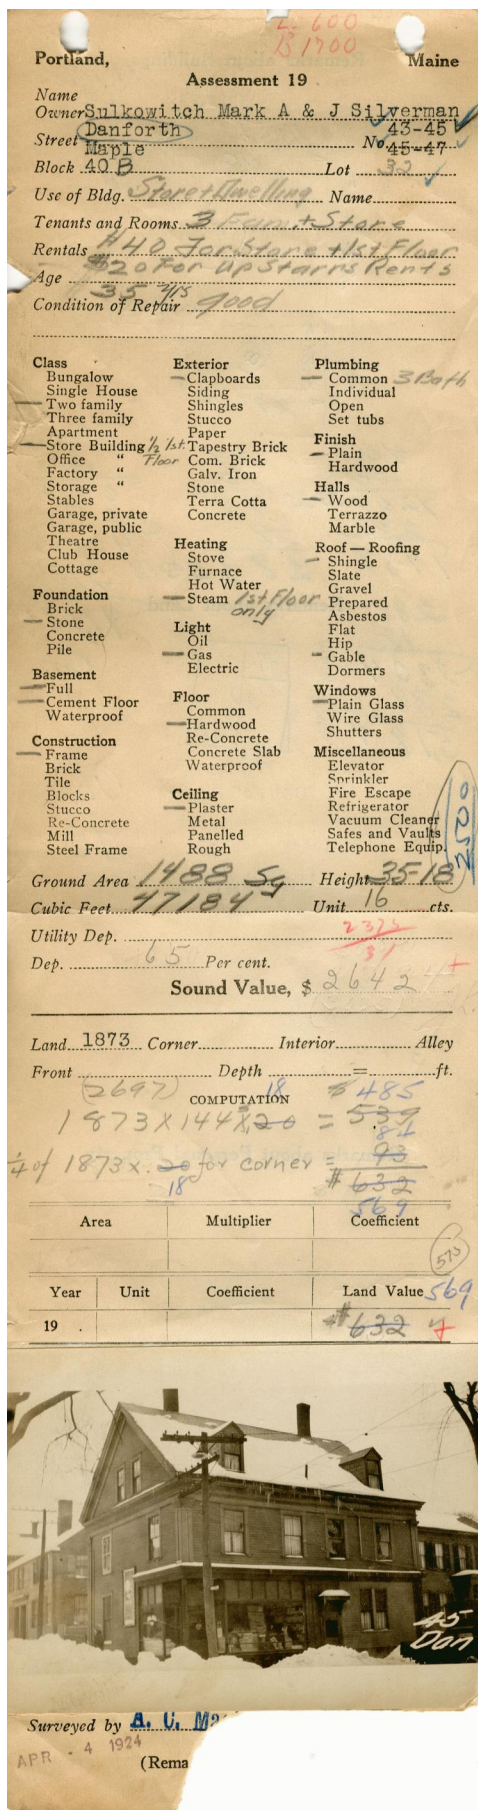 L 600
B 1700
Portland, Maine
Assessment 19
Name
Owner Sulkowitch Mark A & J Silverman
Street Danforth No 43-45
Maple 45-47
Block 40 B Lot 32
Use of Bldg. Store + Dwelling Name
Tenants and Rooms 3 Fam. + Store
Rentals $40 For Store + 1st Floor
$20 For Up Stairrs Rents
Age 35 yrs
Condition of Repair good
Class
Bungalow
Single House
Two family
Three family
Apartment
Store Building 1/2 1st. Floor
Office "
Factory "
Storage "
Stables
Garage, private
Garage, public
Theatre
Club House
Cottage
Foundation
Brick
Stone
Concrete
Pile
Basement
Full
Cement Floor
Waterproof
Construction
Frame
Brick
Tile
Blocks
Stucco
Re-Concrete
Mill
Steel Frame
Exterior
Clapboards
Siding
Shingles
Stucco
Paper
Tapestry Brick
Com. Brick
Galv. Iron
Stone
Terra Cotta
Concrete
Heating
Stove
Furnace
Hot Water
Steam 1st Floor only
Light
Oil
Gas
Electric
Floor
Common
Hardwood
Re-Concrete
Concrete Slab
Waterproof
Ceiling
Plaster
Metal
Panelled
Rough
Plumbing
Common 3 Bath
Individual
Open
Set tubs
Finish
Plain
Hardwood
Halls
Wood
Terrazzo
Marble
Roof — Roofing
Shingle
Slate
Gravel
Prepared
Asbestos
Flat
Hip
Gable
Dormers
Windows
Plain Glass
Wire Glass
Shutters
Miscellaneous
Elevator
Sprinkler
Fire Escape
Refrigerator
Vacuum Cleaner
Safes and Vaults
Telephone Equip.
2500
Ground Area 1488 Sq Height 35-18
Cubic Feet 47184 Unit 16 cts.
Utility Dep. 2375
31
Dep. 65 Per cent.
Sound Value, $ 2642
Land 1873 Corner Interior Alley
Front Depth = ft.
(2697) 18 $ 485
COMPUTATION
1873 X 144 X 20 = 539
84
1/4 of 1873 x .20 for corner = 93
18 # 632
569
Area Multiplier Coefficient
573
Year Unit Coefficient Land Value 569
19 # 632
45
Dan
Surveyed by A. C. Ma
APR - 4 1924
(Rema